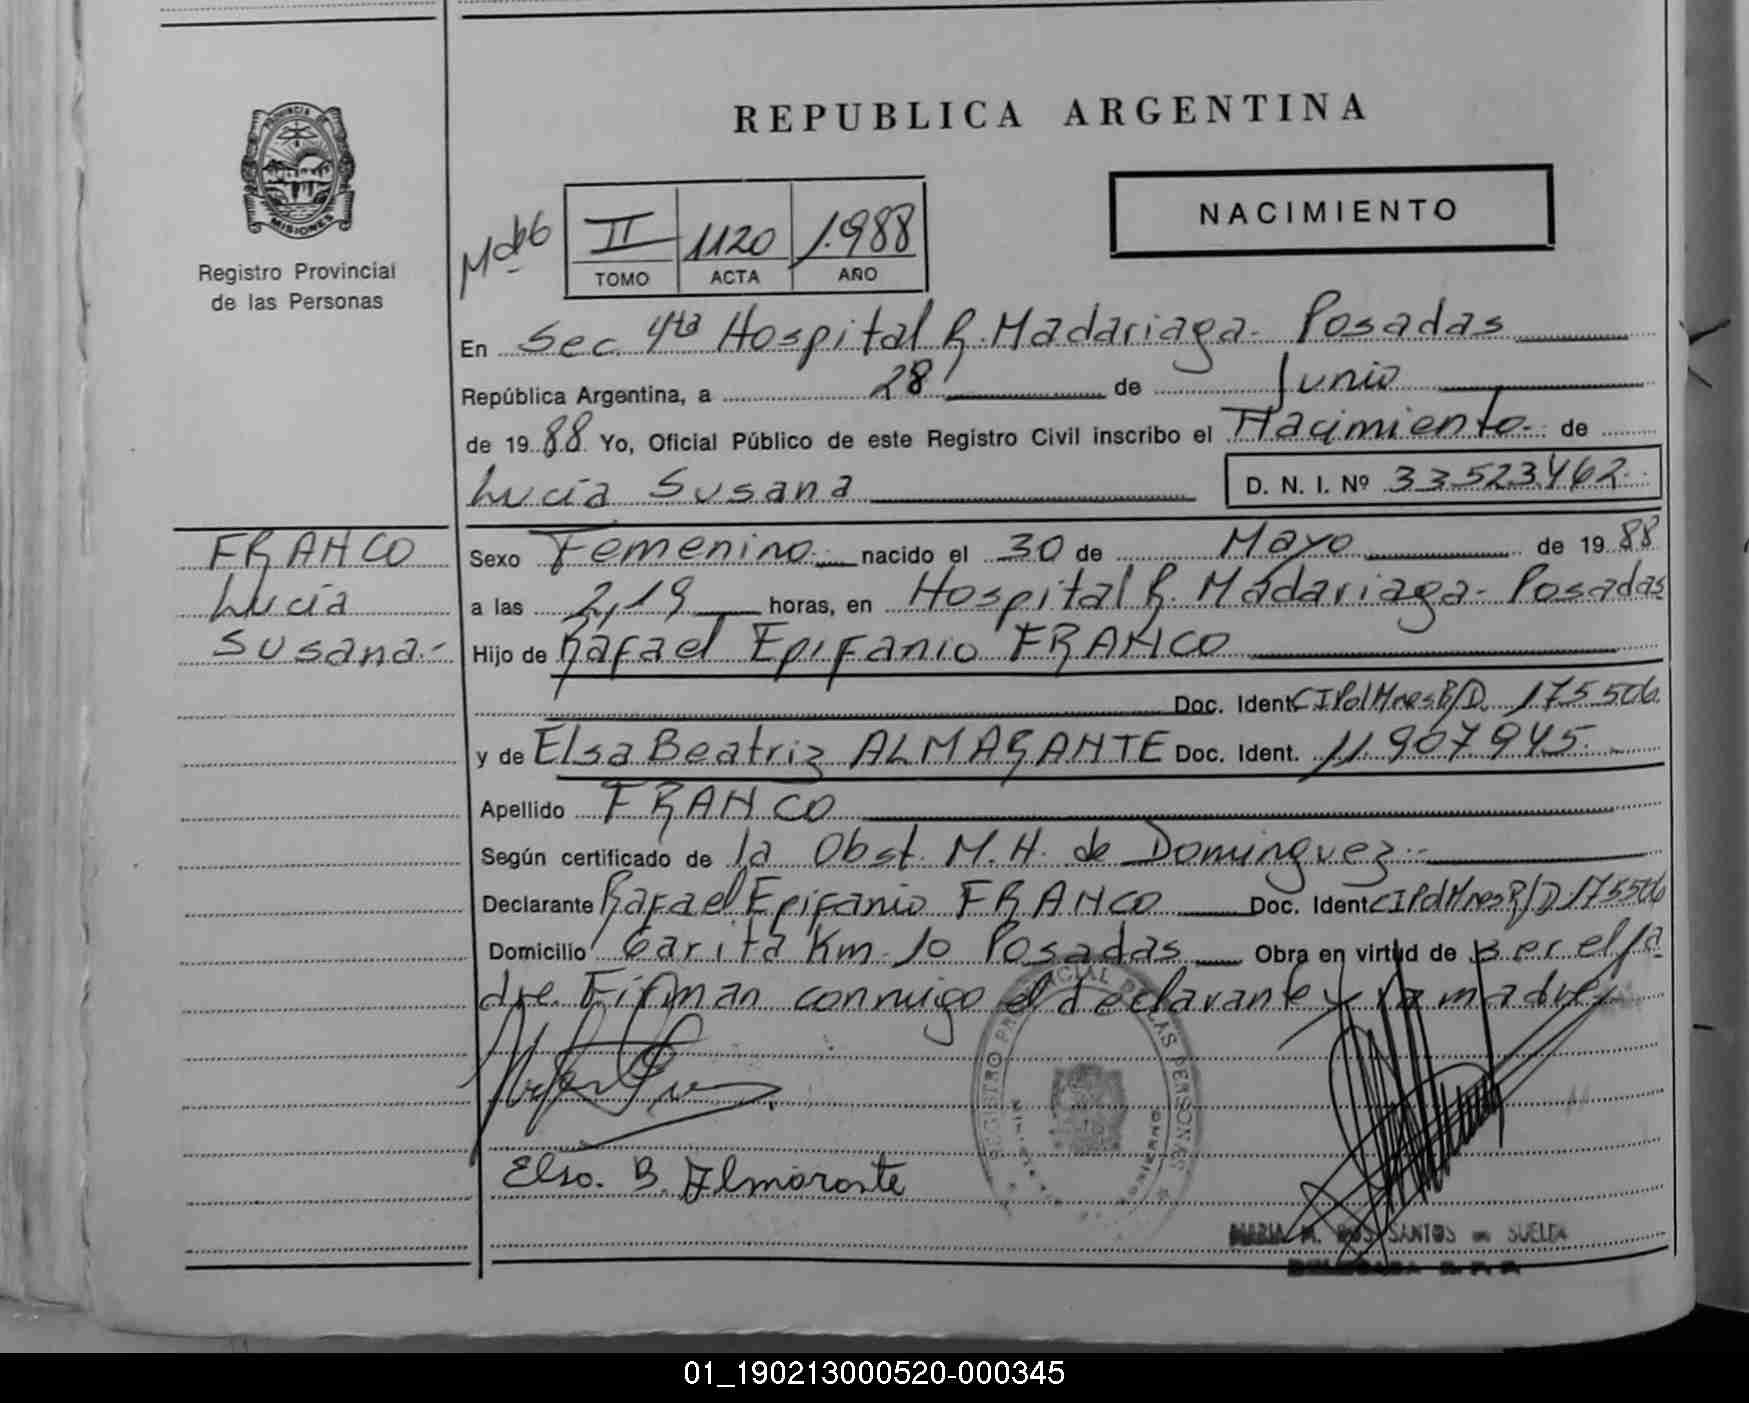 PROVINCIA DE
MISIONES
Registro Provincial
de las Personas
REPUBLICA ARGENTINA
NACIMIENTO
II 1120 1.988
TOMO ACTA AÑO
En Sec. 4ta Hospital R. Madariaga - Posadas
República Argentina, a 28 de Junio
de 1988 Yo, Oficial Público de este Registro Civil inscribo el Nacimiento de
Lucia Susana D. N. I. Nº 33523.462
FRANCO
Lucía
Susana.-
Sexo Femenino nacido el 30 de Mayo de 1988
a las 2,19 horas, en Hospital R. Madariaga - Posadas
Hijo de Rafael Epifanio FRANCO
Doc. Ident. CIPolMnesR/D. 175506
y de Elsa Beatriz ALMARANTE Doc. Ident. 11.907945.-
Apellido FRANCO
Según certificado de la Obst. M. H. de Dominguez.-
Declarante Rafael Epifanio FRANCO Doc. Ident. CIPolMnesR/D. 175506
Domicilio Garita Km. 10 Posadas Obra en virtud de Ser el pa
dre. Firman conmigo el declarante y la madre
REGISTRO PROVINCIAL DE LAS PERSONAS
Elsa. B. Almarante
MARIA M. DOS SANTOS de SUELDA
DELEGADA R. P. P.
01_190213000520-000345